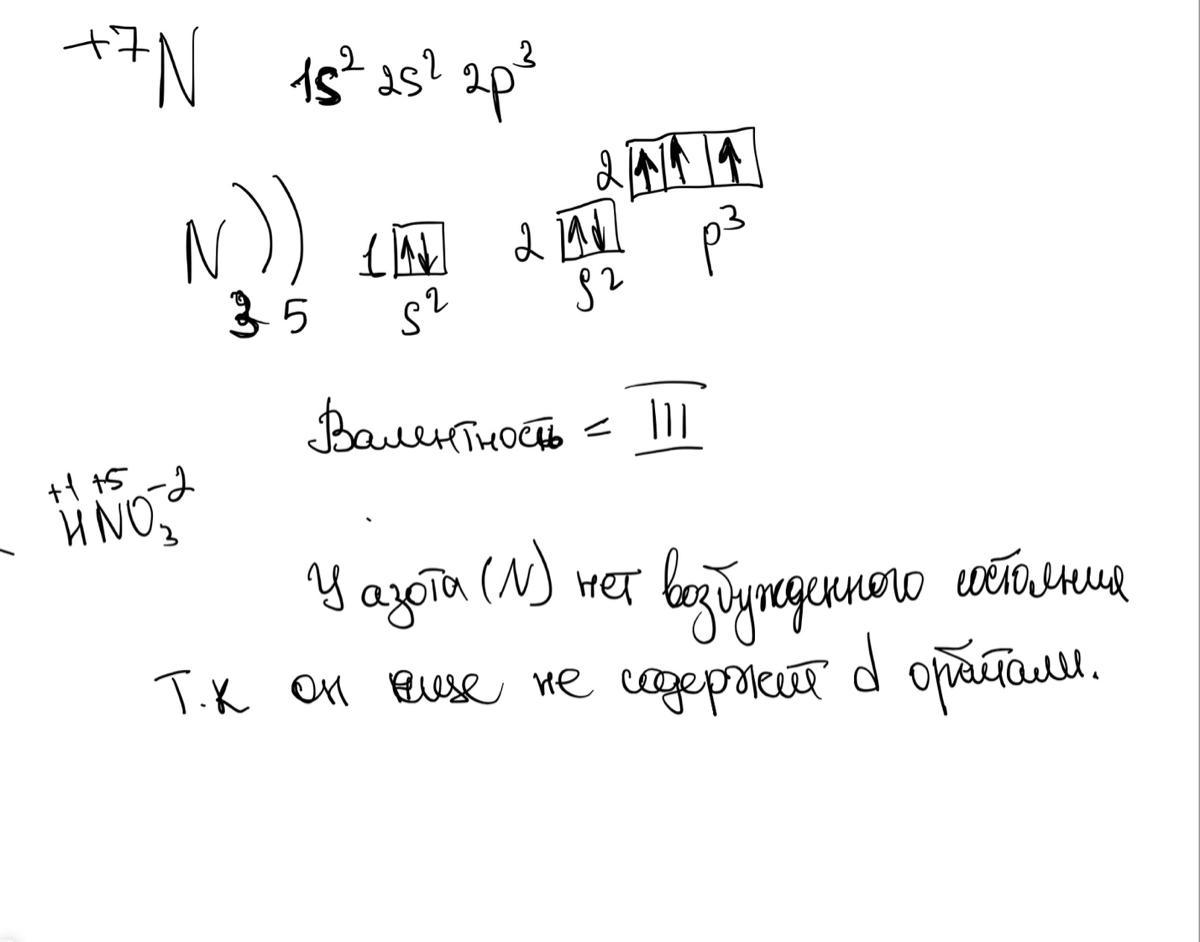 +7N 1s² 2s² 2p³
2 ↑ ↑ ↑
N 1 ↑↓ 2 ↑↓ p³
5 s² s²
Валентность = III
+1 +5 -2
HNO₃
У азота (N) нет возбужденного состояния
Т.к он не содержит d орбитали.